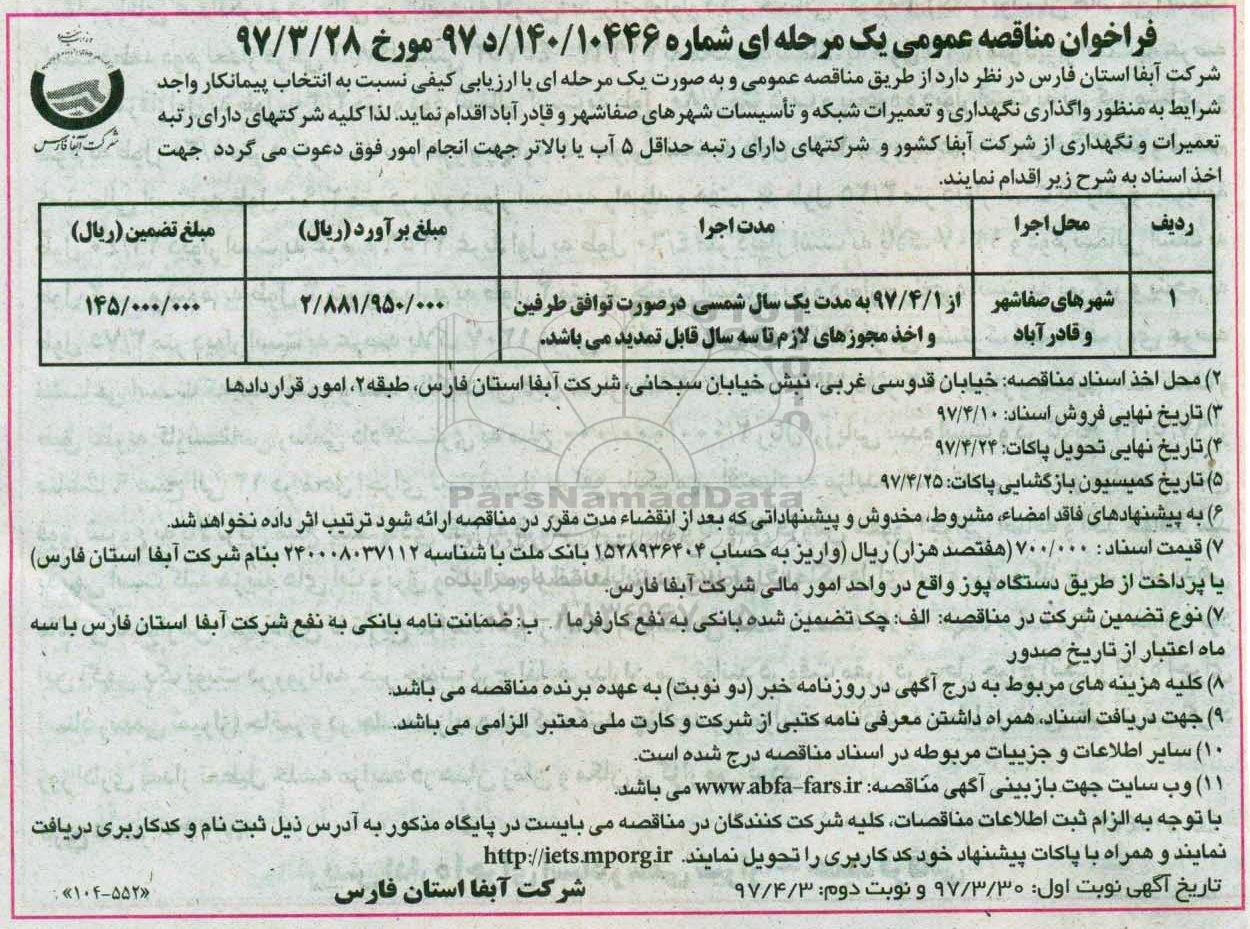 فراخوان مناقصه عمومی یک مرحله ای شماره ۱۴۰/۱۰۴۴۶/د۹۷ مورخ ۹۷/۳/۲۸
شرکت آبفا استان فارس در نظر دارد از طریق مناقصه عمومی و به صورت یک مرحله ای با ارزیابی کیفی نسبت به انتخاب پیمانکار واجد
شرایط به منظور واگذاری نگهداری و تعمیرات شبکه و تأسیسات شهرهای صفاشهر و قادر آباد اقدام نماید. لذا کلیه شرکتهای دارای رتبه
تعمیرات و نگهداری از شرکت آبفا کشور و شرکتهای دارای رتبه حداقل ۵ آب یا بالاتر جهت انجام امور فوق دعوت می گردد جهت
اخذ اسناد به شرح زیر اقدام نمایند.
شرکت آبفا فارس
ردیف محل اجرا مدت اجرا مبلغ برآورد (ریال) مبلغ تضمین (ریال)
۱ شهرهای صفاشهر از ۹۷/۴/۱ به مدت یک سال شمسی درصورت توافق طرفین ۲/۸۸۱/۹۵۰/۰۰۰ ۱۴۵/۰۰۰/۰۰۰
و قادر آباد و اخذ مجوزهای لازم تا سه سال قابل تمدید می باشد.
۲) محل اخذ اسناد مناقصه: خیابان قدوسی غربی، نبش خیابان سبحانی، شرکت آبفا استان فارس، طبقه۲، امور قراردادها
۳) تاریخ نهایی فروش اسناد: ۹۷/۴/۱۰
۴) تاریخ نهایی تحویل پاکات: ۹۷/۴/۲۴
۵) تاریخ کمیسیون بازگشایی پاکات: ۹۷/۴/۲۵
ParsNamadData
۶) به پیشنهادهای فاقد امضاء، مشروط، مخدوش و پیشنهاداتی که بعد از انقضاء مدت مقرر در مناقصه ارائه شود ترتیب اثر داده نخواهد شد.
۷) قیمت اسناد: ۷۰۰/۰۰۰ (هفتصد هزار) ریال (واریز به حساب ۱۵۲۸۹۳۶۴۰۴ بانک ملت با شناسه ۲۴۰۰۰۸۰۳۷۱۱۲ بنام شرکت آبفا استان فارس)
یا پرداخت از طریق دستگاه پوز واقع در واحد امور مالی شرکت آبفا فارس.
۷) نوع تضمین شرکت در مناقصه: الف: چک تضمین شده بانکی به نفع کارفرما ب: ضمانت نامه بانکی به نفع شرکت آبفا استان فارس با سه
ماه اعتبار از تاریخ صدور
۸) کلیه هزینه های مربوط به درج آگهی در روزنامه خبر (دو نوبت) به عهده برنده مناقصه می باشد.
۹) جهت دریافت اسناد، همراه داشتن معرفی نامه کتبی از شرکت و کارت ملی معتبر الزامی می باشد.
۱۰) سایر اطلاعات و جزییات مربوطه در اسناد مناقصه درج شده است.
۱۱) وب سایت جهت بازبینی آگهی مناقصه: www.abfa-fars.ir می باشد.
با توجه به الزام ثبت اطلاعات مناقصات، کلیه شرکت کنندگان در مناقصه می بایست در پایگاه مذکور به آدرس ذیل ثبت نام و کدکاربری دریافت
نمایند و همراه با پاکات پیشنهاد خود کد کاربری را تحویل نمایند. http://iets.mporg.ir
تاریخ آگهی نوبت اول: ۹۷/۳/۳۰ و نوبت دوم: ۹۷/۴/۳
شرکت آبفا استان فارس
«۱۰۴-۵۵۲»